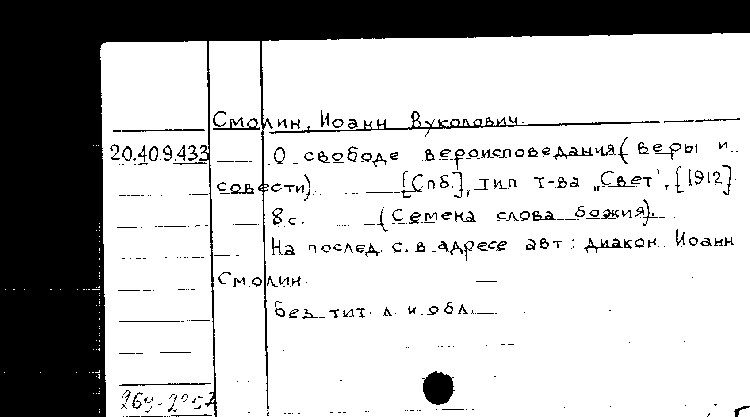 Смолин, Иоанн Вуколович.
20.40.9.433 О свободе вероисповедания (веры и
совести). [Спб.], тип т-ва „Свет", [1912]
8 с. (Семена слова божия).
На послед. с. в адресе авт: диакон Иоанн
Смолин.
Без тит. л. и обл.